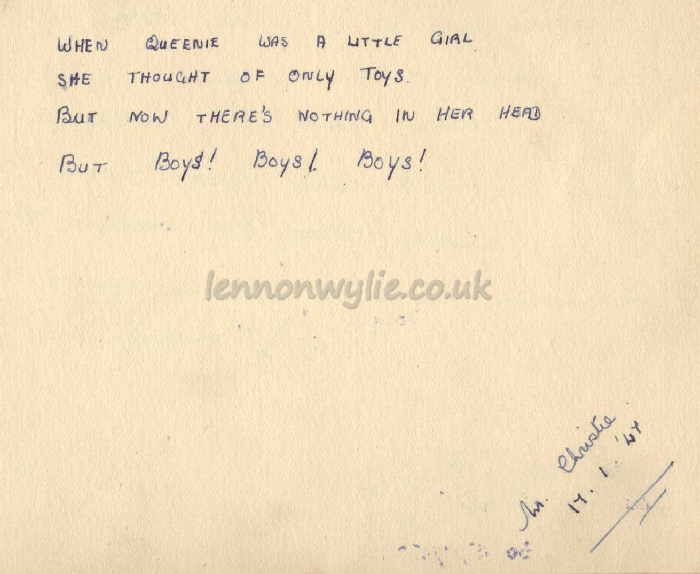 WHEN QUEENIE WAS A LITTLE GIRL
SHE THOUGHT OF ONLY TOYS.
BUT NOW THERE'S NOTHING IN HER HEAD
BUT BOYS! BOYS! BOYS!
lennonwylie.co.uk
M. Christie
17. 1. '47